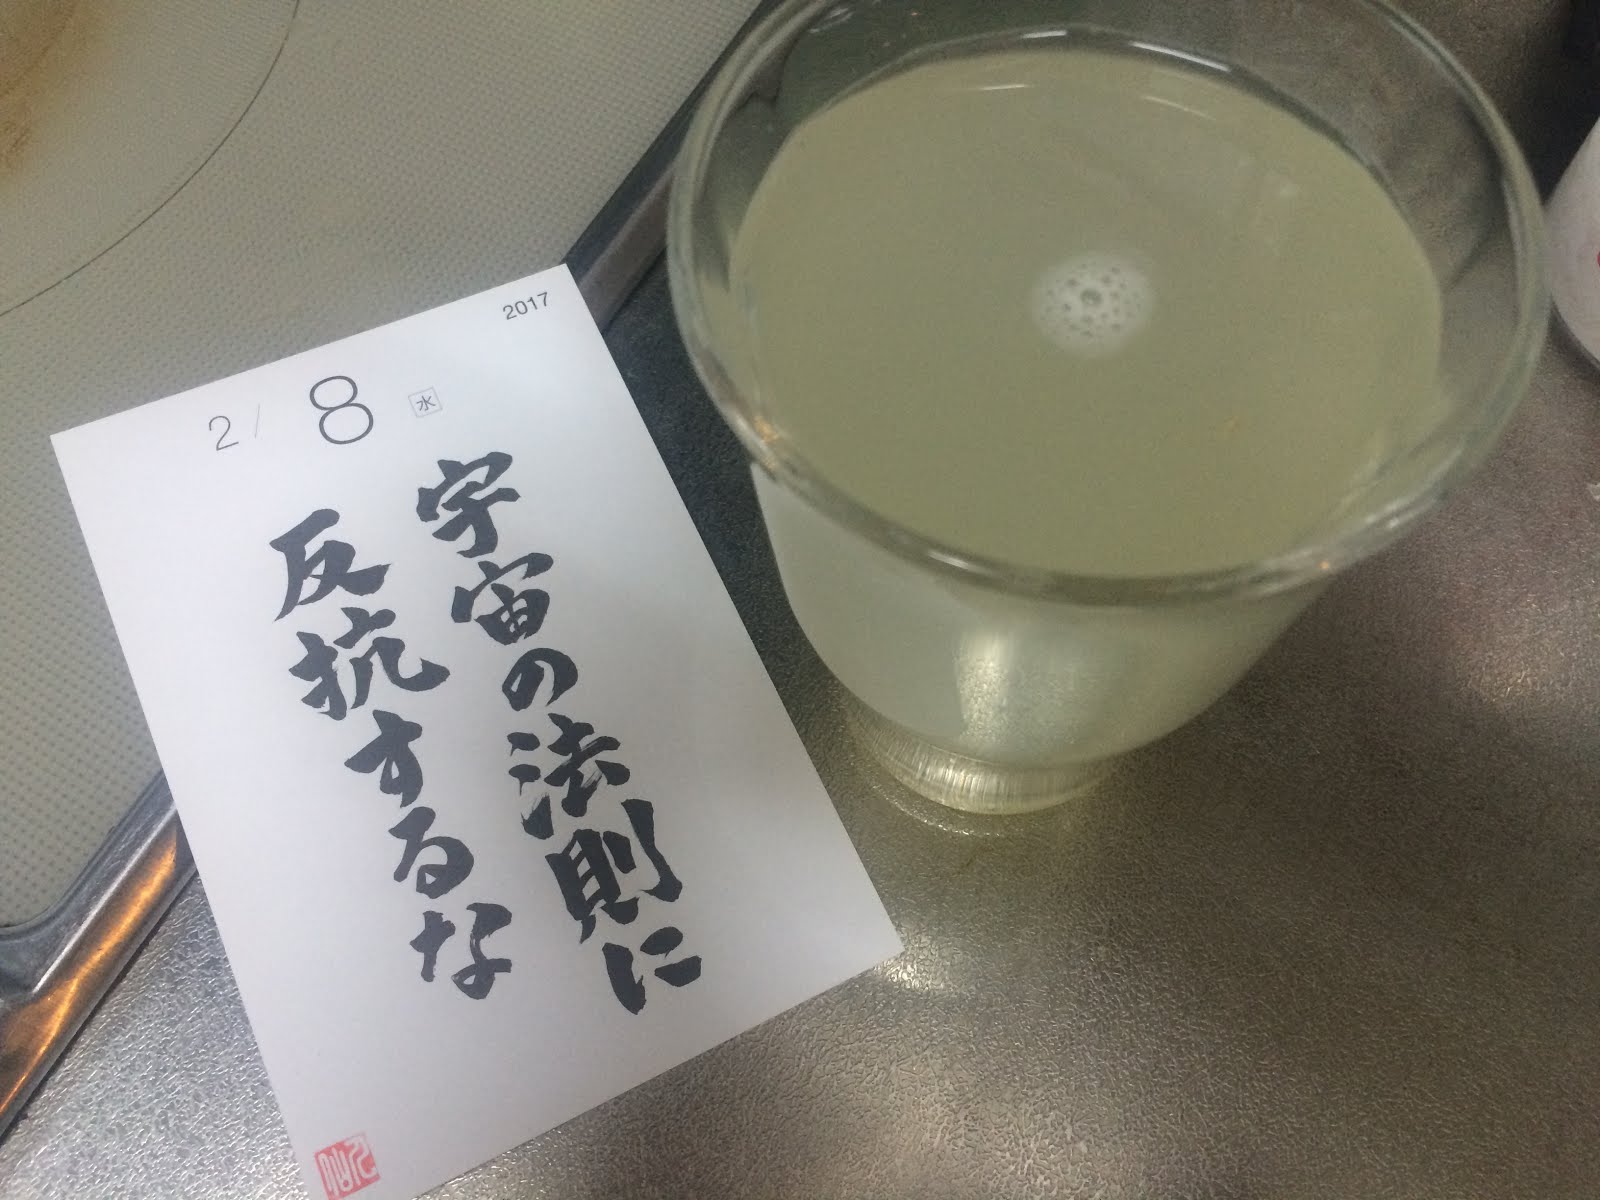 2017
2/8 水
宇宙の法則に
反抗するな